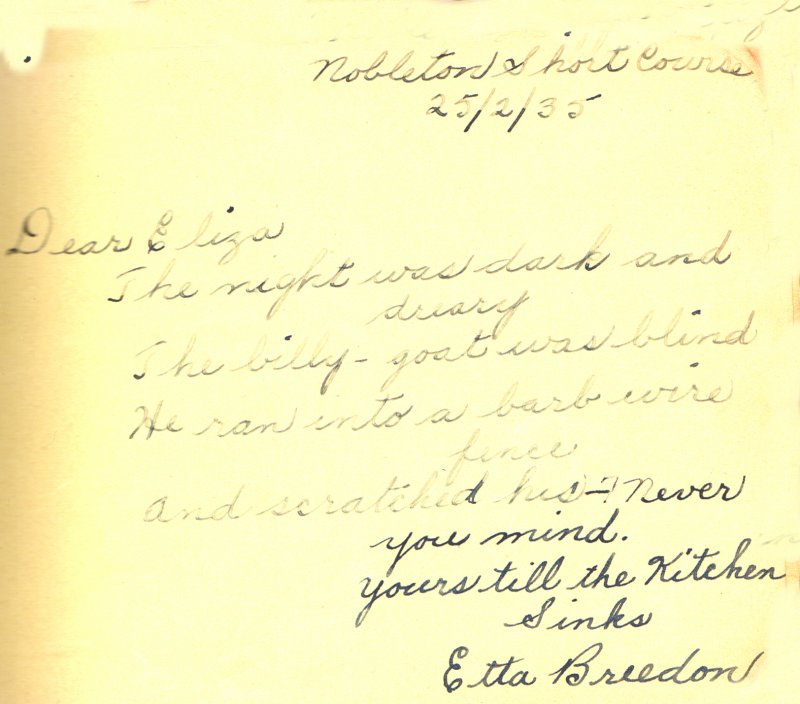 Nobleton Short Course
25/2/35
Dear Eliza
The night was dark and
dreary
The billy-goat was blind
He ran into a barb wire
fence
and scratched his -! Never
you mind.
yours till the Kitchen
Sinks
Etta Breedon